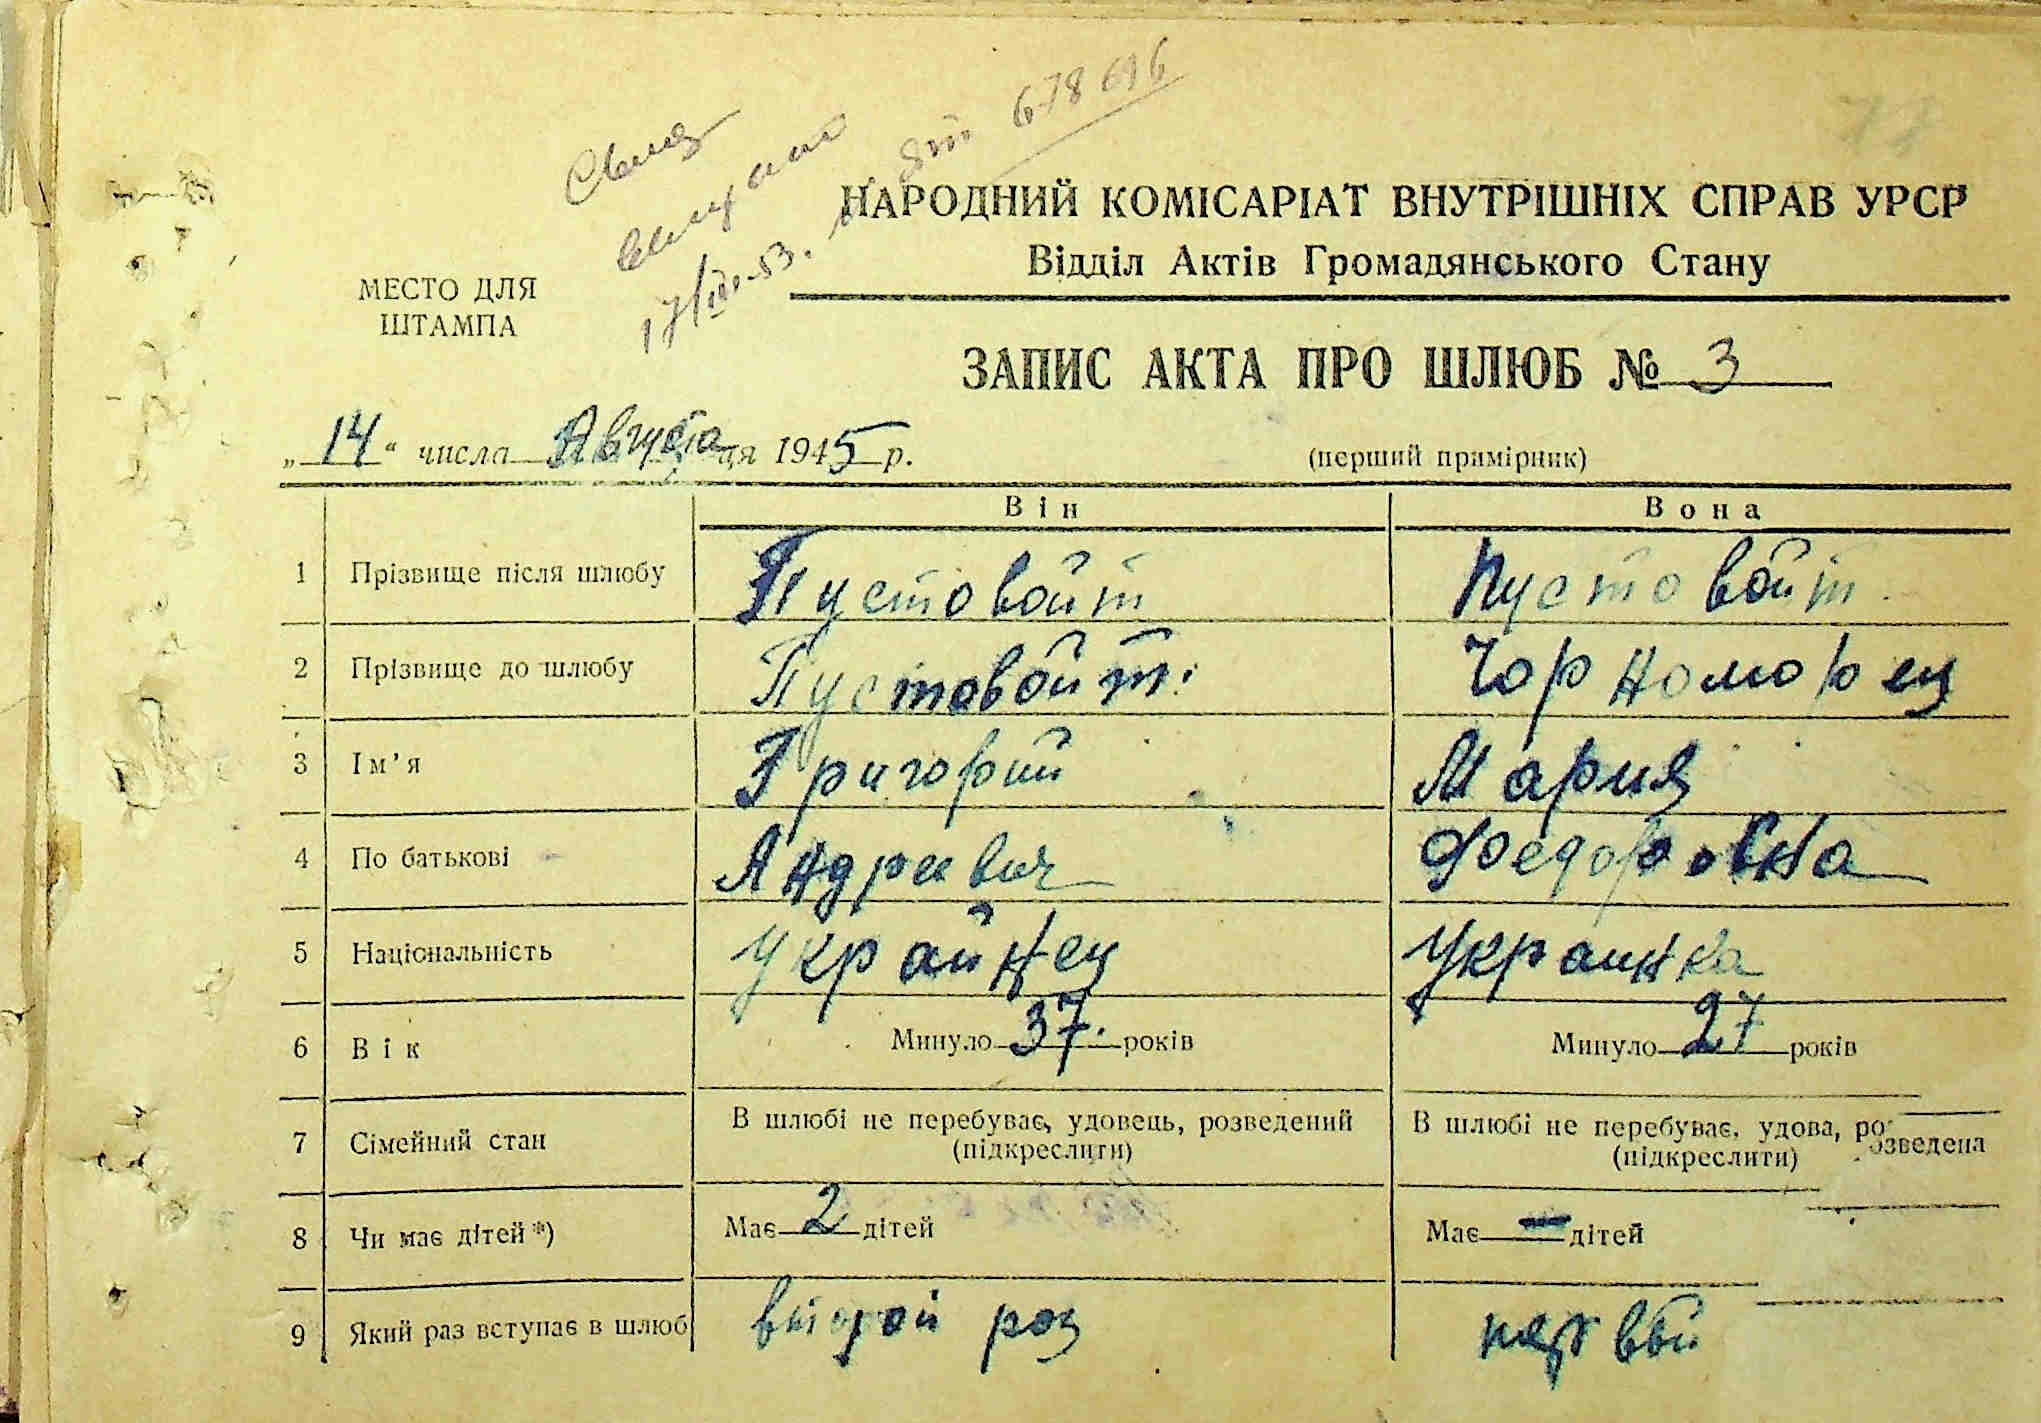 678696
НАРОДНИЙ КОМІСАРІАТ ВНУТРІШНІХ СПРАВ УРСР
Відділ Актів Громадянського Стану
МЕСТО ДЛЯ
ШТАМПА
ЗАПИС АКТА ПРО ШЛЮБ № 3
„14“ числа Августа ця 1945 р.
(перший примірник)
Він Вона
1 Прізвище після шлюбу Пустовойт Пустовойт
2 Прізвище до шлюбу Пустовойт Чорноморец
3 Ім’я Григорий Мария
4 По батькові Андреевич Федоровна
5 Національність Украйнец Украинка
6 Вік Минуло 37 років Минуло 27 років
7 Сімейний стан В шлюбі не перебуває, удовець, розведений (підкреслити) В шлюбі не перебуває, удова, розведена (підкреслити)
8 Чи має дітей *) Має 2 дітей Має — дітей
9 Який раз вступає в шлюб второй раз первый